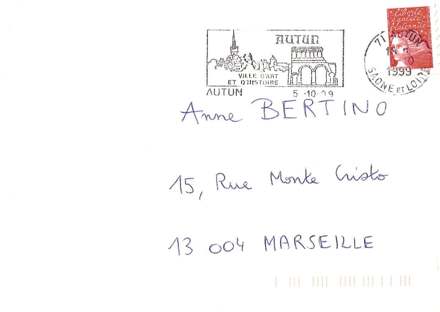 AUTUN
VILLE D'ART
ET D'HISTOIRE
AUTUN 5-10-99
71 AUTUN
1999
SAONE ET LOIRE
Anne BERTINO
15, Rue Monte Cristo
13 004 MARSEILLE